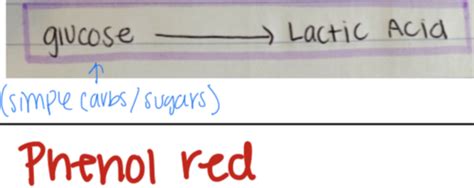 glucose → Lactic Acid
(simple carbs/sugars)
Phenol red